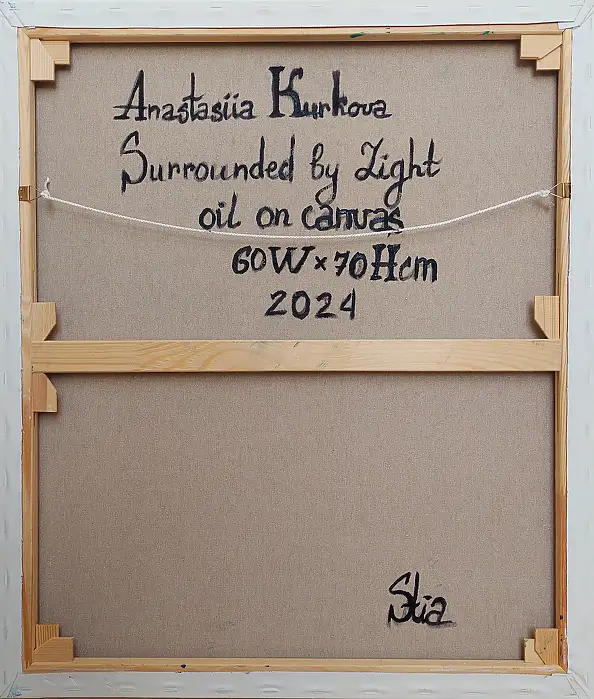 Anastasiia Kurkova
Surrounded by Light
oil on canvas
60W×70Hcm
2024
Stia